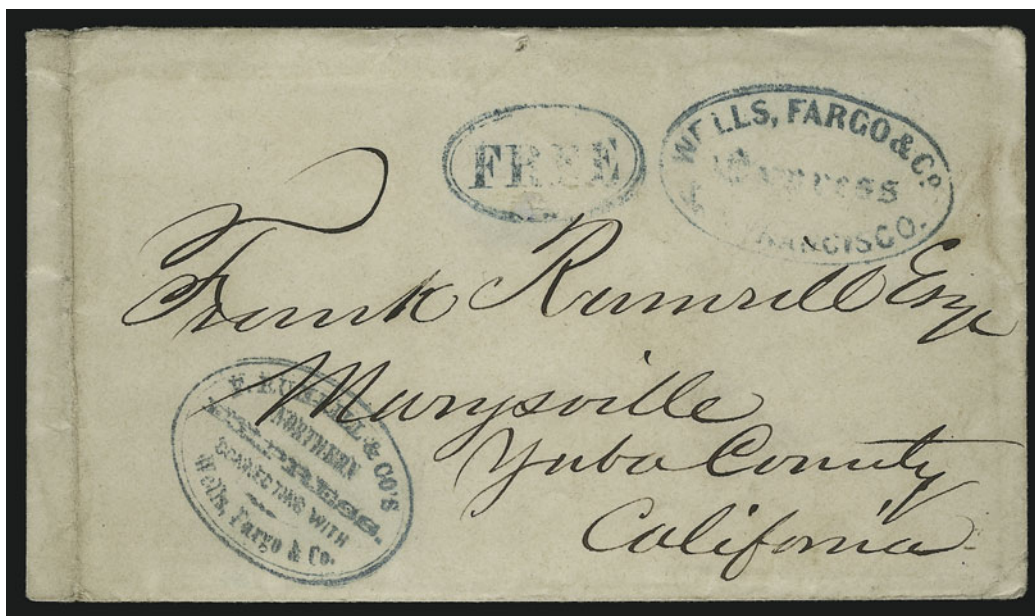 FREE
WELLS, FARGO & Co.
Express
FRANCISCO.
Frank Rumrill Esq
Marysville
Yuba County
California
F. RUMRILL & CO'S
NORTHERN
EXPRESS.
CONNECTING WITH
Wells, Fargo & Co.